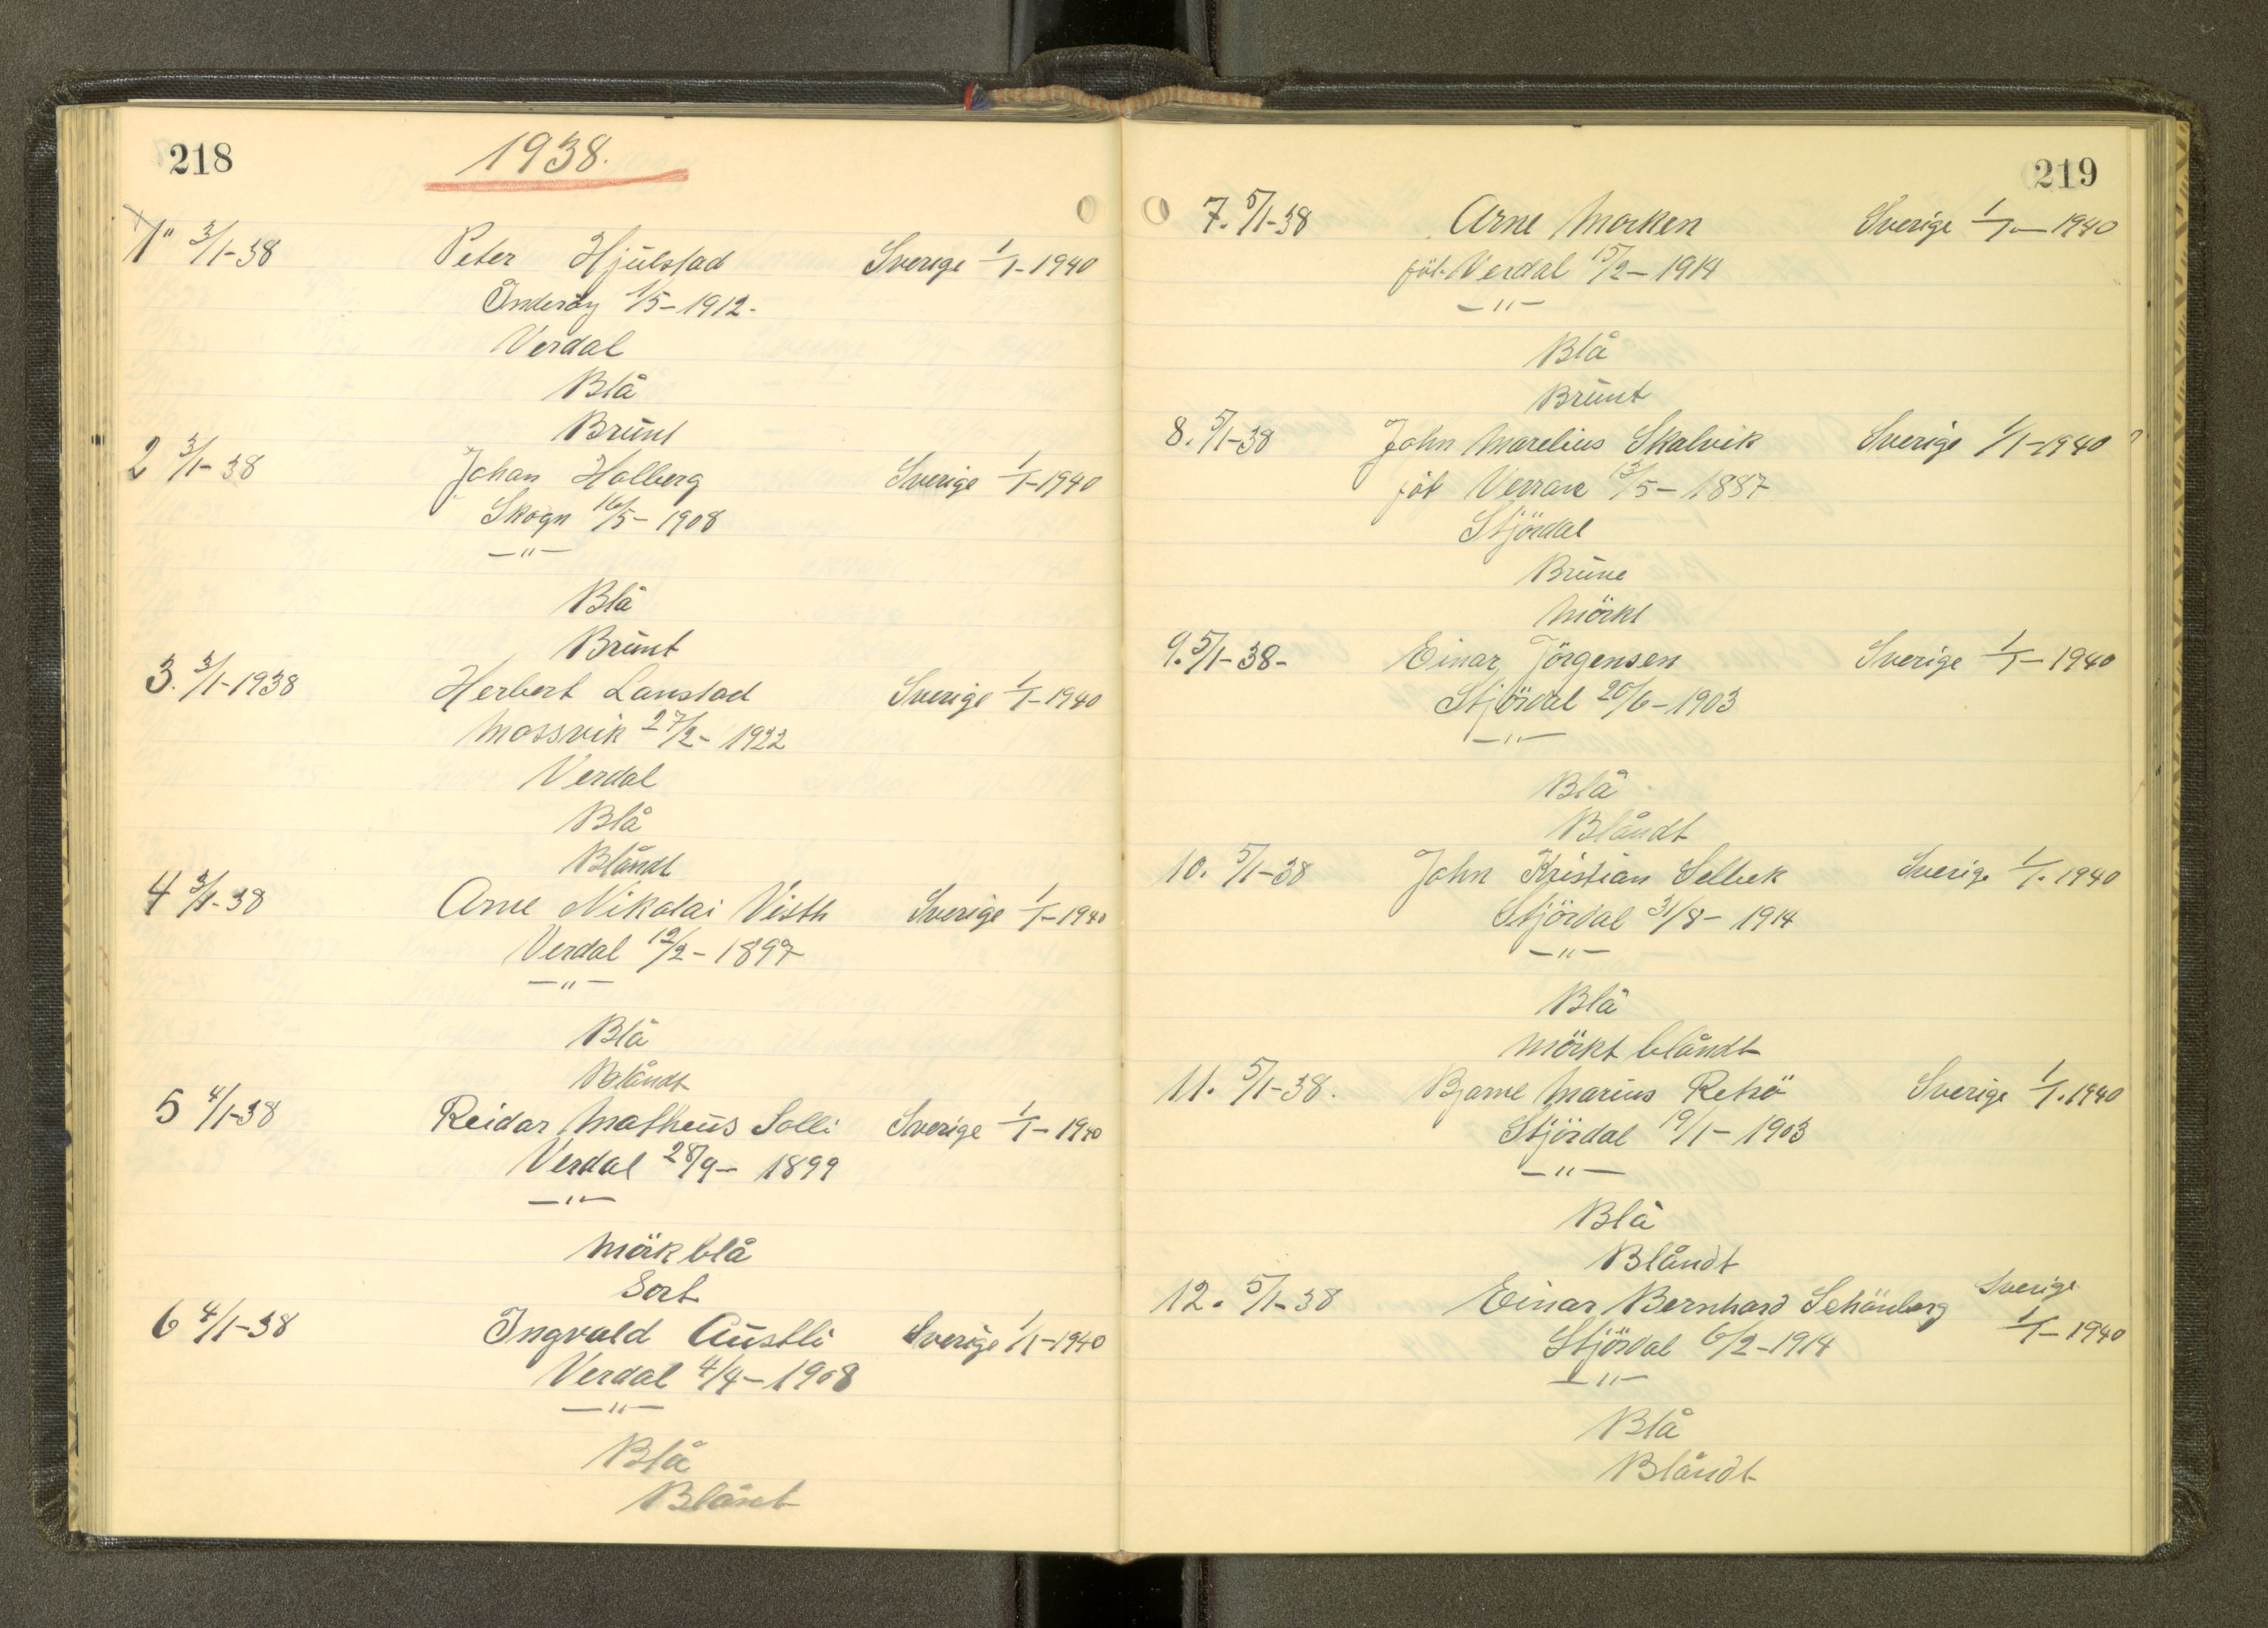 218
1938.
1" 3/1-38 Peter Hjulstad Sverige 1/1-1940
Inderöy 1/5-1912.
Verdal
Blå
Brunt
2 3/1-38 Johan Holberg Sverige 1/1-1940
Skogn 16/5-1908
-"-
Blå
Brunt
3. 3/1-1938 Herbert Lanstad Sverige 1/1-1940
Mossvik 27/2-1922
Verdal
Blå
Blåndt
4 3/1-38 Arne Nikolai Visth Sverige 1/1-1940
Verdal 12/2-1897
-"-
Blå
Blåndt
5 4/1-38 Reidar Matheus Solli Sverige 1/1-1940
Verdal 28/9-1899
-"-
Mörk blå
Sort
6 4/1-38 Ingvald Austli Sverige 1/1-1940
Verdal 4/4-1908
-"-
Blå
Blånt
219
7. 5/1-38 Arne Morken Sverige 1/1-1940
föt. Verdal 15/2-1914
-"-
Blå
Brunt
8. 5/1-38 John Marelius Skalvik Sverige 1/1-1940
föt Verran 13/5-1887
Stjördal
Brune
Mörkt
9. 5/1-38- Einar Jörgensen Sverige 1/1-1940
Stjördal 20/6-1903
-"-
Blå
Blåndt
10. 5/1-38 John Kristian Selbek Sverige 1/1.1940
Stjördal 31/8-1914
-"-
Blå
Mörkt blåndt
11. 5/1-38. Bjarne Marius Retsö Sverige 1/1.1940
Stjördal 19/1-1903
-"-
Blå
Blåndt
12. 5/1-38 Einar Bernhard Schönberg Sverige
1/1-1940
Stjördal 6/2-1914
-"-
Blå
Blåndt